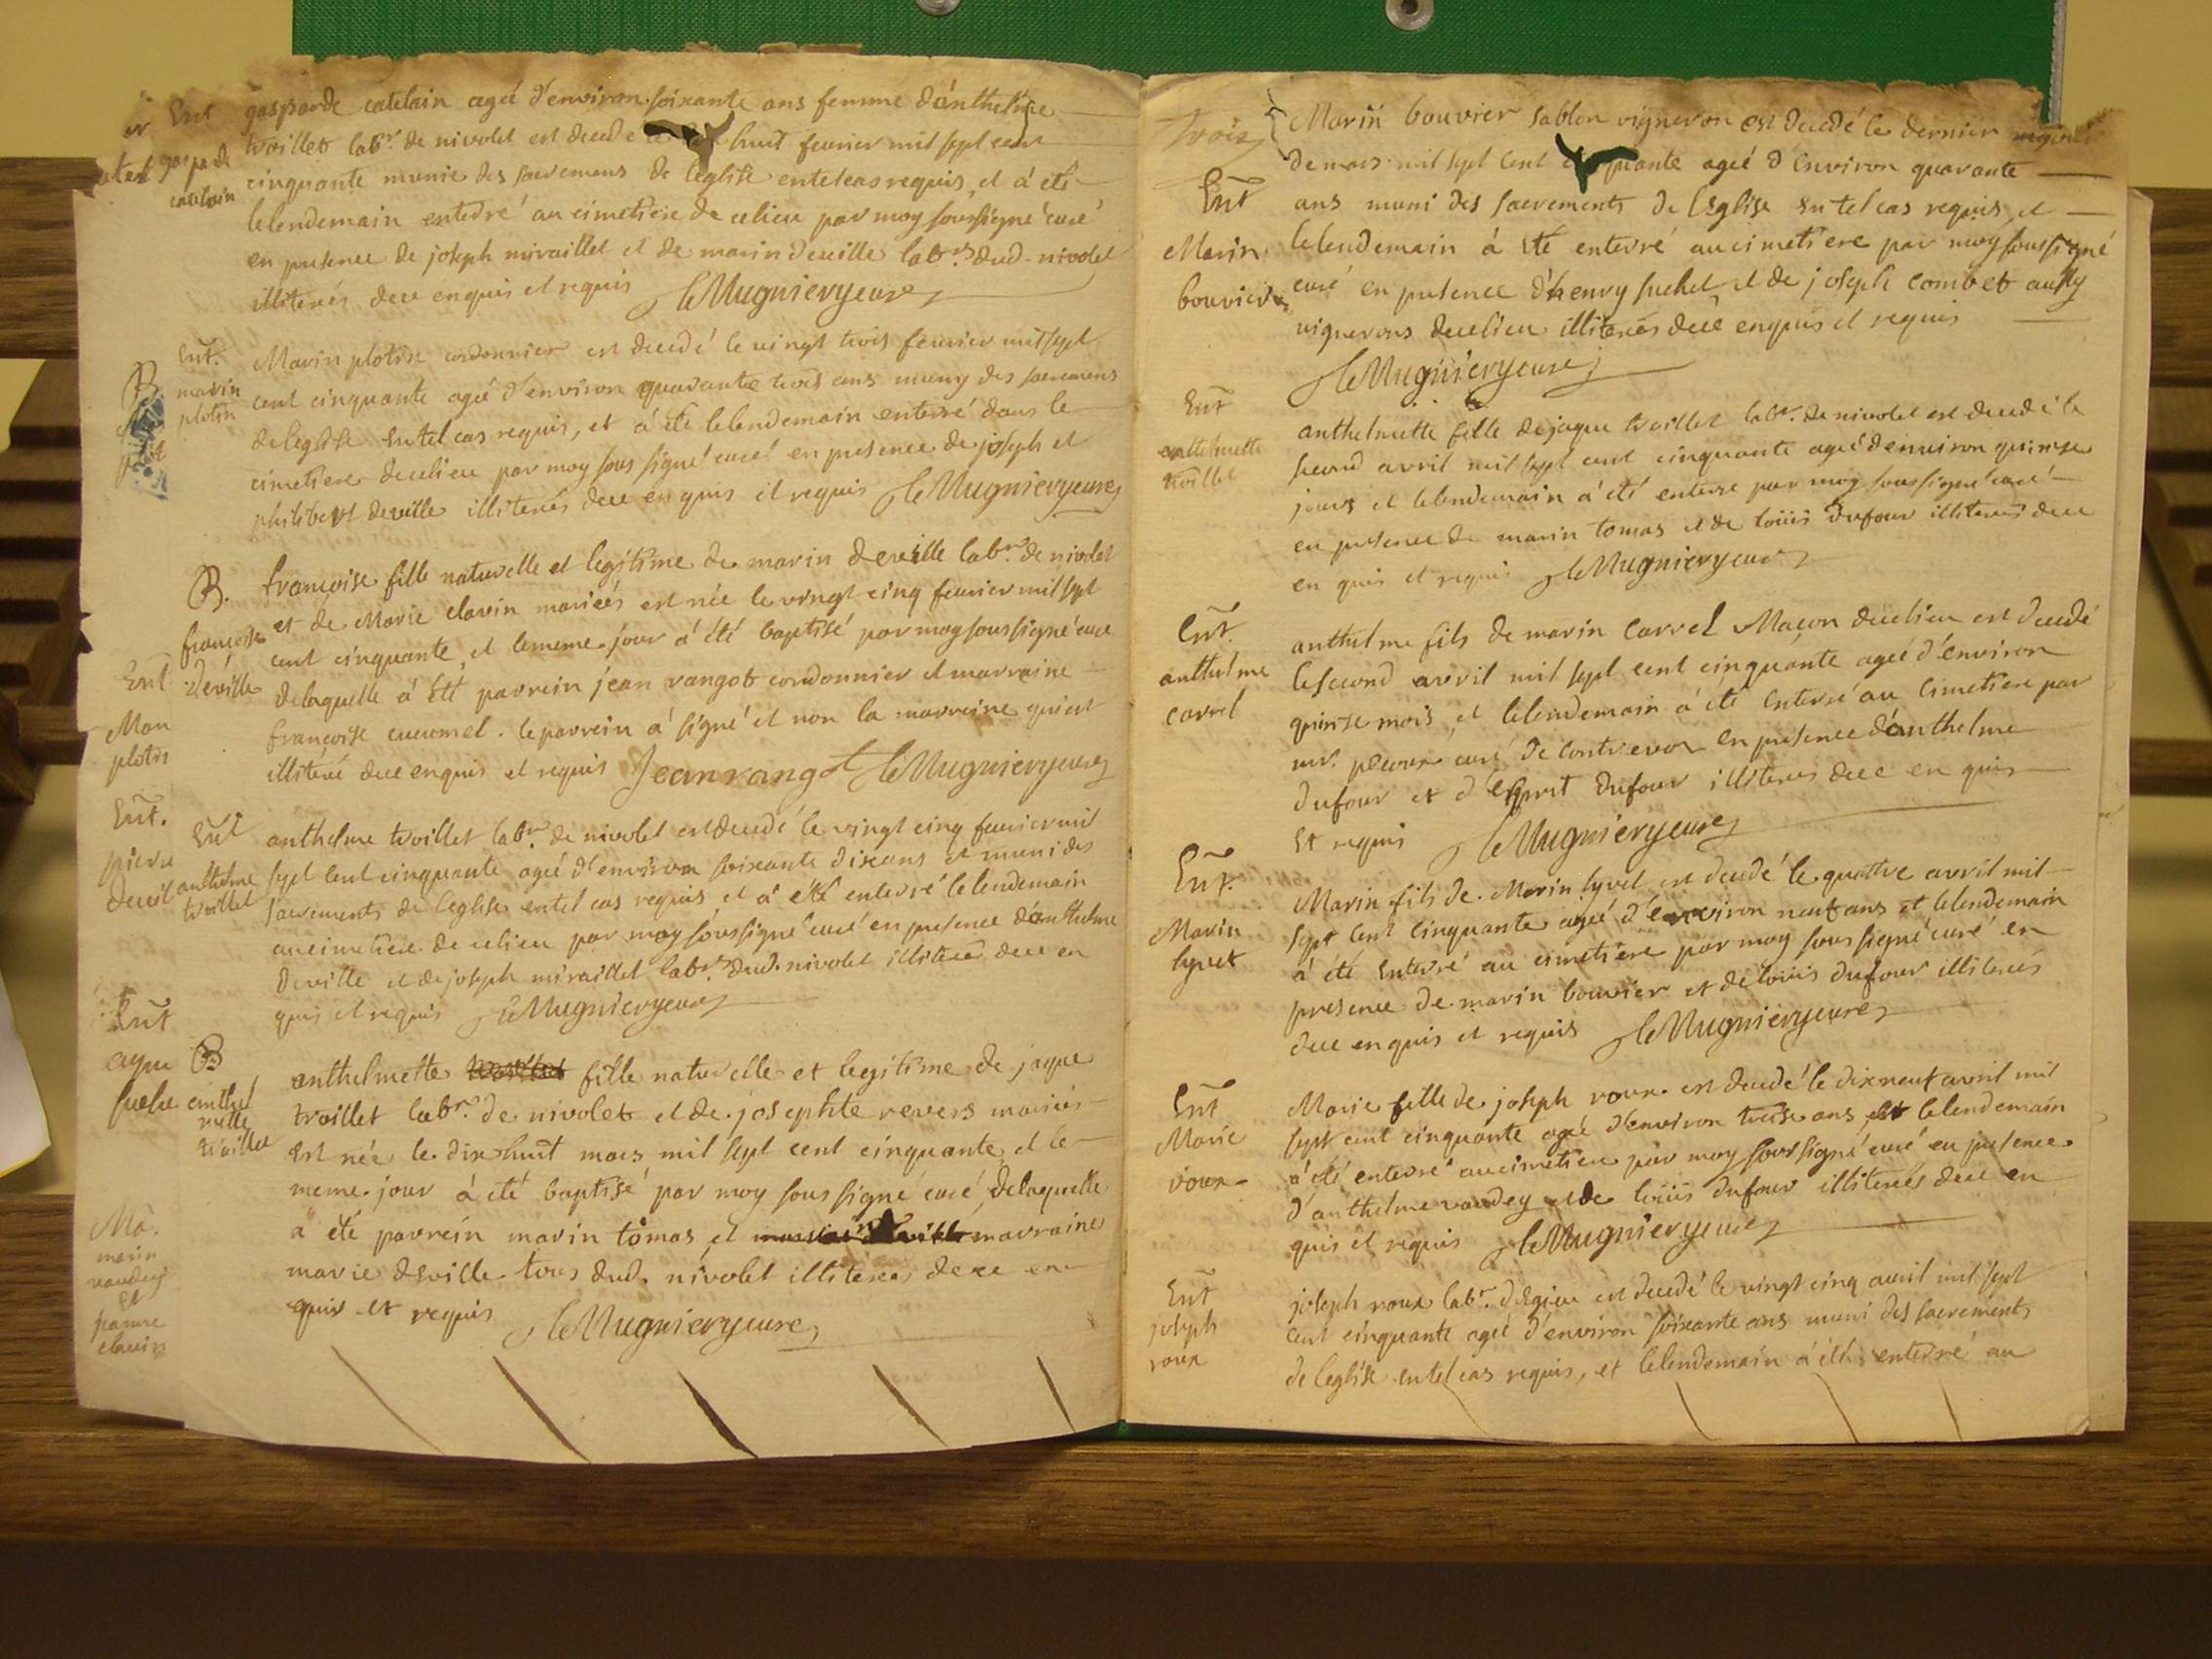 Ent
gasparde
catelain
gasparde catelain ageé d'environ soixante ans femme d'anthelme
troillet labr. de nivolet est decedé huit feurier mil sept cent
cinquante munie des sacremens de l'eglise entelcas requis, et á eté
lelendemain enterré au cimetiere de celieu par moy soussigné curé
en presence de joseph miraillet et de marin deville labrs. dud. nivolet
illiterés dece enquis et requis LeMugnieryeure
Ent.
marin
plotin
Marin plotin cordonnier est decedé le vingt trois feurier mil sept
cent cinquante ageé d'environ quarante trois ans muny des sacremens
deleglise entel cas requis, et á eté lelendemain enterré dans le
cimetiere decelieu par moy sous signé curé en presence de joseph et
philibert deville illiterés dece enquis et requis LeMugnieryeure
B.
françoise
deville
françoise fille naturelle et legitime de marin deville labr. de nivolet
et de Marie clavin mariés est née le vingt cinq feurier mil sept
cent cinquante, et lememe jour á été baptisé par moy soussigné curé
delaquelle á été parrein jean rangot cordonnier et marraine
françoise cucumel. le parrein á signé et non la marraine qui est
illiteré dece enquis et requis Jean rangot LeMugnieryeure
Ent
anthelme
troillet
anthelme troillet labr. de nivolet est decedé le vingt cinq feurier mil
sept cent cinquante ageé d'environ soixante dixans et muni des
sacrements de leglise entel cas requis et á eté enterré lelendemain
aucimetiere de celieu par moy soussigné curé en presence d'anthelme
deville et de joseph miraillet labrs. dud. nivolet illiteré dece en
quis et requis LeMugnieryeure
B
anthel
mette
troillet
anthelmette troillet fille naturelle et legitime de jaque
troillet labr. de nivolet et de josephte revers mariés
est née le dixhuit mars mil sept cent cinquante et le
meme jour á été baptisé par moy soussigné curé, delaquelle
a été parrein marin tomas et marraine
marie deville tous dud. nivolet illiterés dece en
quis et requis LeMugnieryeure
Ent
Mar
plotin
Ent.
pierre
devil
Ent
aque
suche
Ma.
marin
vaudey
et
clavin
trois
Ent
Marin
bouvier
Marin bouvier sablon vigneron est decedé le dernier
de mars mil sept cent cinquante ageé d'environ quarante
ans muni des sacrements de l'Eglise en tel cas requis et
lelendemain á eté enterré aucimetiere par moy soussigné
curé en presence d'henry suchet et de joseph combet aussy
vignerons decelieu illiterés dece enquis et requis
LeMugnieryeure
Ent
anthelmette
troillet
anthelmette fille dejaque troillet labr. de nivolet est decedé le
second avril mil sept cent cinquante ageé denviron quinse
jours et lelendemain á été enterré par moy soussigné curé
en presence de marin tomas et de loüis Dufour illiterés dece
en quis et requis LeMugnieryeure
Ent.
anthelme
carrel
anthelme fils de marin Carrel Maçon decelieu est decedé
lesecond avril mil sept cent cinquante ageé d'environ
quinse mois, et lelendemain á eté enterré au cimetiere par
mr. curé de contrevoz en presence d'anthelme
dufour et d'esprit Dufour illiterés dece en quis
et requis LeMugnieryeure
Ent.
Marin
syvet
Marin fils de Marin syvet est decedé le quattre avril mil
sept cent cinquante ageé d'environ neuf ans et lelendemain
á été enterré au cimetiere par moy sous signé curé en
presence de marin bouvier et de loüis dufour illiterés
dece enquis et requis LeMugnieryeure
Ent
Marie
roux
Marie fille de joseph roux est decedé le dixneuf avril mil
sept cent cinquante ageé d'environ treise ans, et lelendemain
á été enterré aucimetiere par moy soussigné curé en presence
d'anthelme vaudey et de loüis dufour illiterés dece en
quis et requis LeMugnieryeure
Ent
joseph
roux
joseph roux labr. d'Egieu est decedé le vingt cinq avril mil sept
cent cinquante ageé d'environ soixante ans muni des sacrements
de leglise entel cas requis, et lelendemain á été enterré au